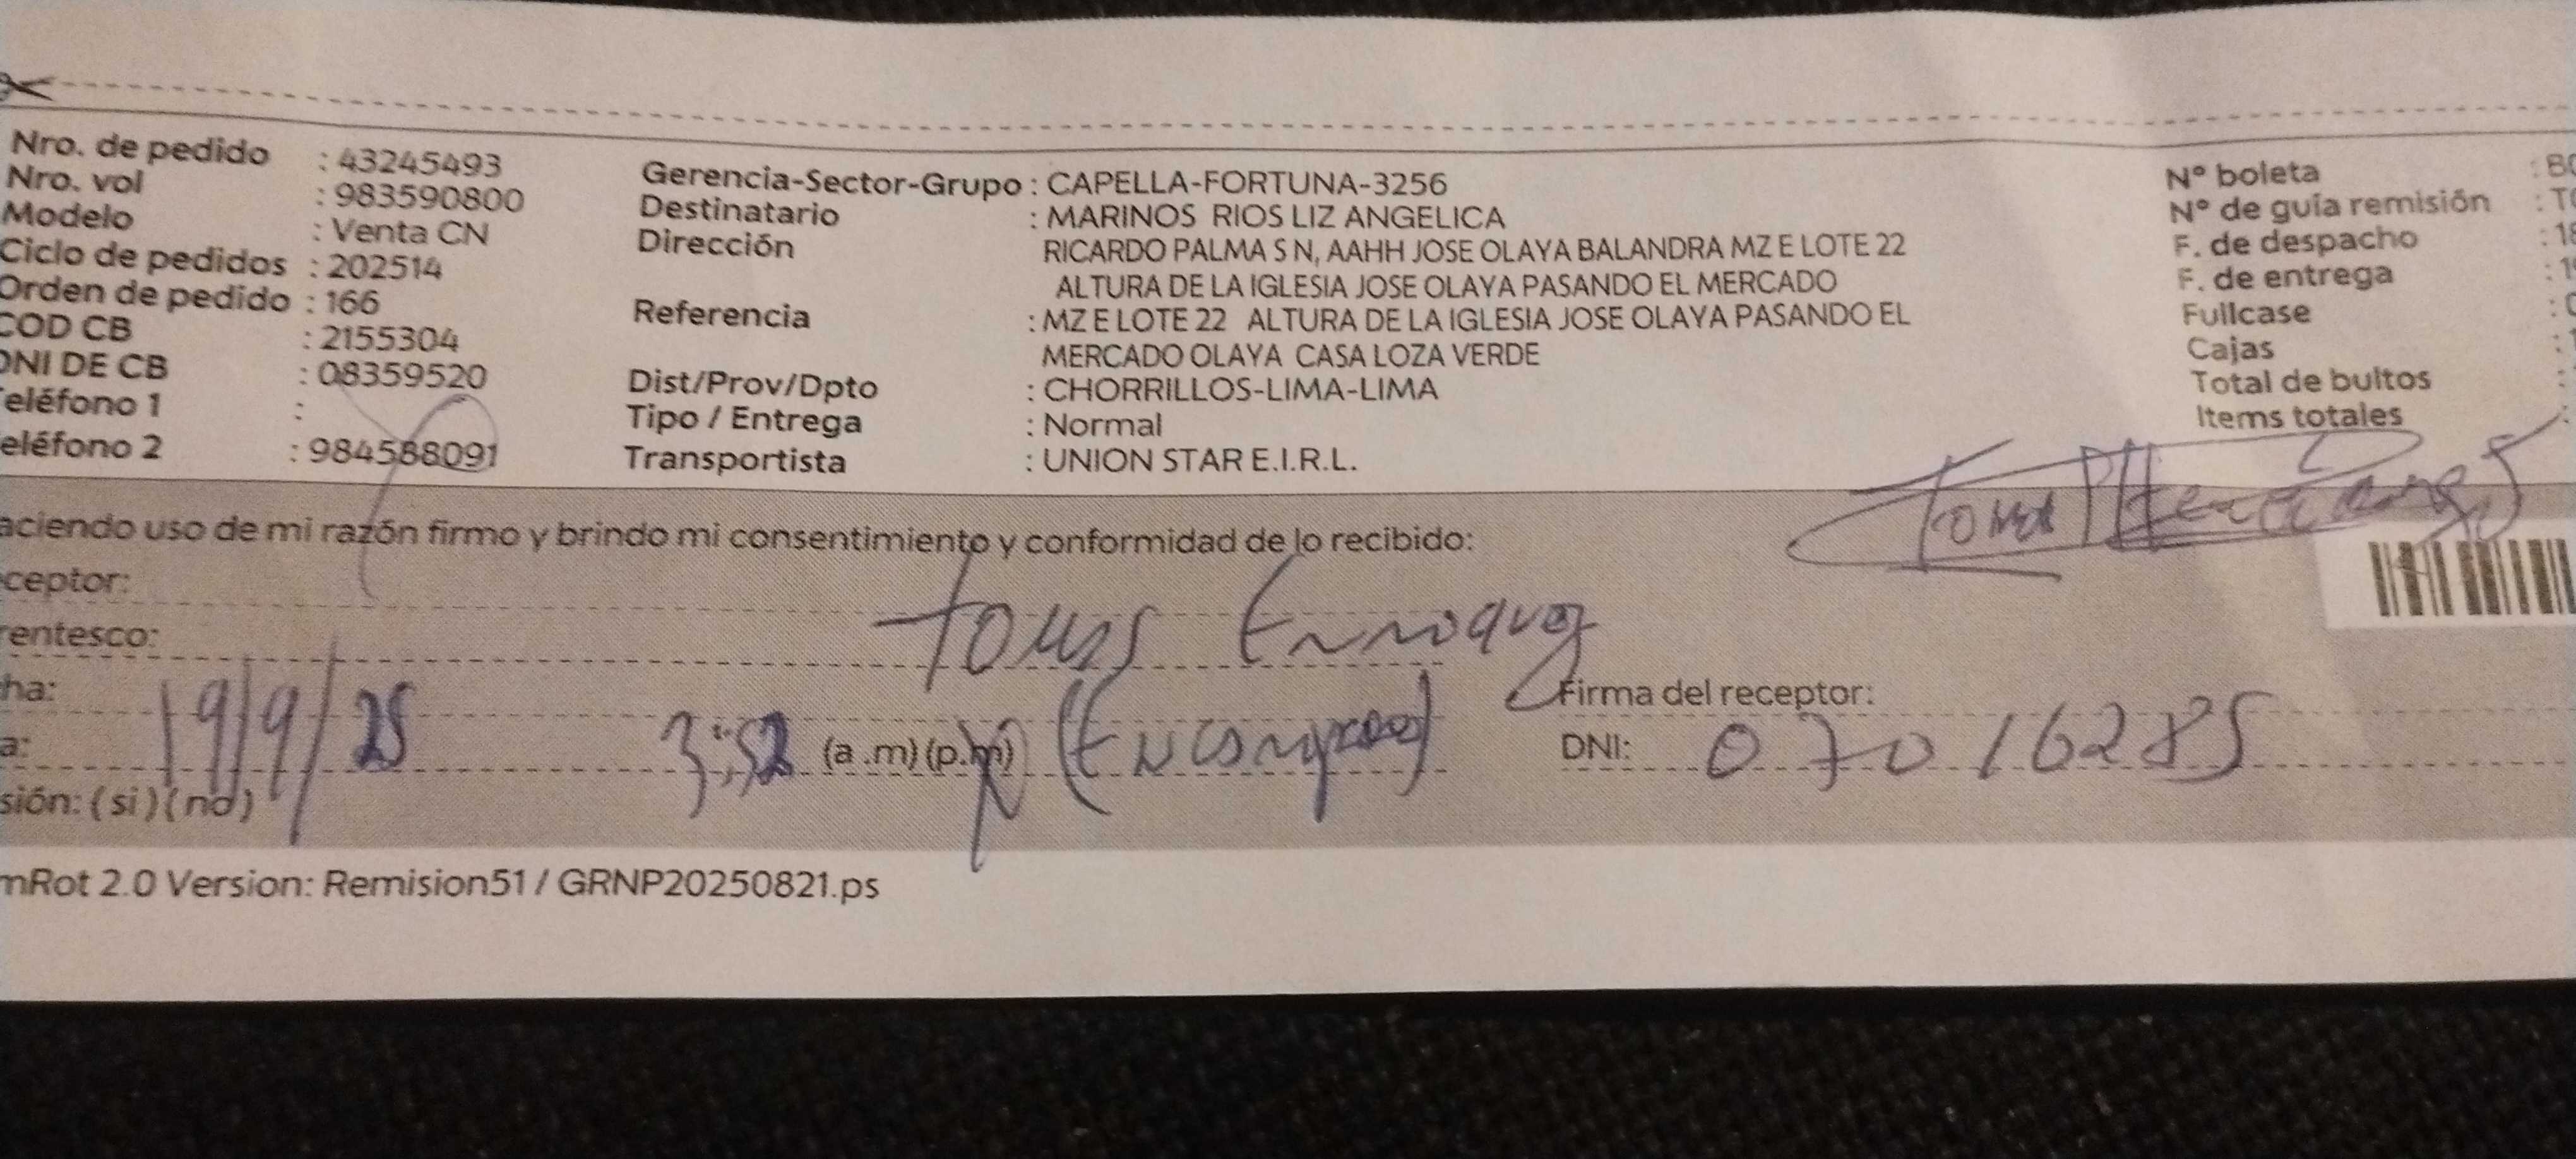 Nro. de pedido : 43245493
Nro. vol : 983590800
Modelo : Venta CN
Ciclo de pedidos : 202514
Orden de pedido : 166
COD CB : 2155304
DNI DE CB : 08359520
eléfono 1 :
eléfono 2 : 984588091
Gerencia-Sector-Grupo : CAPELLA-FORTUNA-3256
Destinatario : MARINOS RIOS LIZ ANGELICA
Dirección RICARDO PALMA S N, AAHH JOSE OLAYA BALANDRA MZ E LOTE 22
ALTURA DE LA IGLESIA JOSE OLAYA PASANDO EL MERCADO
Referencia : MZ E LOTE 22 ALTURA DE LA IGLESIA JOSE OLAYA PASANDO EL
MERCADO OLAYA CASA LOZA VERDE
Dist/Prov/Dpto : CHORRILLOS-LIMA-LIMA
Tipo / Entrega : Normal
Transportista : UNION STAR E.I.R.L.
N° boleta : B
N° de guía remisión : T
F. de despacho : 18
F. de entrega : 19
Fullcase :
Cajas :
Total de bultos :
Items totales :
aciendo uso de mi razón firmo y brindo mi consentimiento y conformidad de lo recibido:
ceptor:
rentesco:
ha: 19/9/25
a: 3:52 (a.m) (p.m)
Firma del receptor:
DNI: 07016285
sión: (si) (no)
mRot 2.0 Version: Remision51 / GRNP20250821.ps